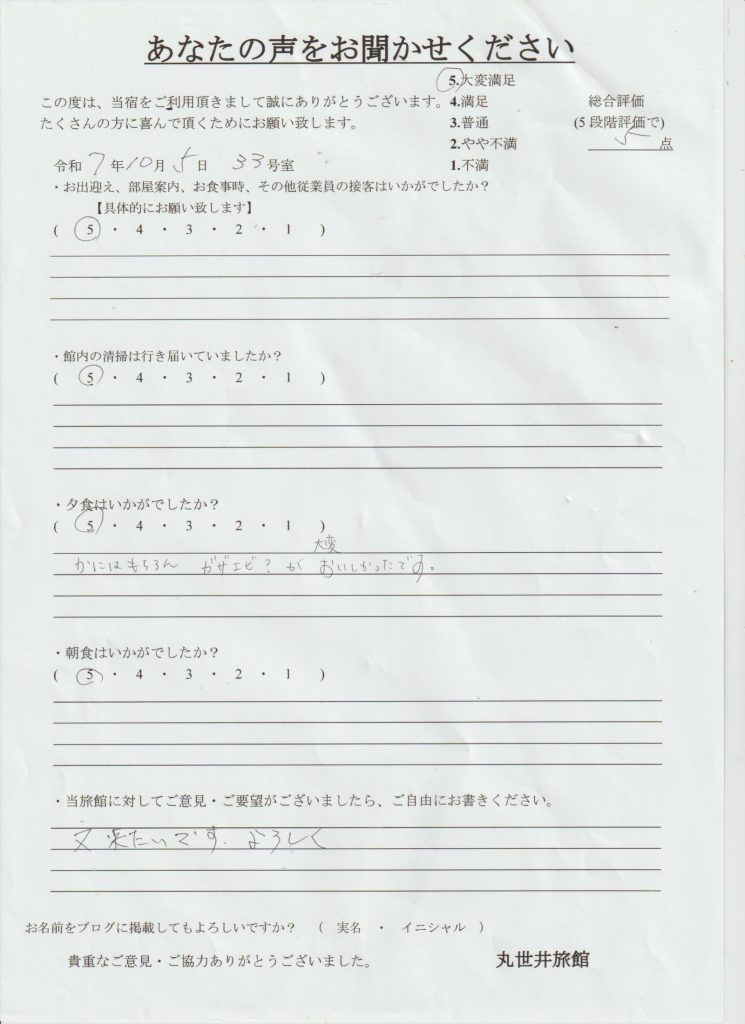 あなたの声をお聞かせください
5.大変満足
この度は、当宿をご利用頂きまして誠にありがとうございます。 4.満足 総合評価
たくさんの方に喜んで頂くためにお願い致します。 3.普通 (5 段階評価で)
2.やや不満 5 点
令和 7 年 10 月 5 日 33 号室 1.不満
・お出迎え、部屋案内、お食事時、その他従業員の接客はいかがでしたか？
【具体的にお願い致します】
( 5 ・ 4 ・ 3 ・ 2 ・ 1 )
・館内の清掃は行き届いていましたか？
( 5 ・ 4 ・ 3 ・ 2 ・ 1 )
・夕食はいかがでしたか？
( 5 ・ 4 ・ 3 ・ 2 ・ 1 )
大変
かにはもちろん ガザエビ？が おいしかったです。
・朝食はいかがでしたか？
( 5 ・ 4 ・ 3 ・ 2 ・ 1 )
・当旅館に対してご意見・ご要望がございましたら、ご自由にお書きください。
又来たいです。よろしく
お名前をブログに掲載してもよろしいですか？ （ 実名 ・ イニシャル ）
貴重なご意見・ご協力ありがとうございました。 丸世井旅館